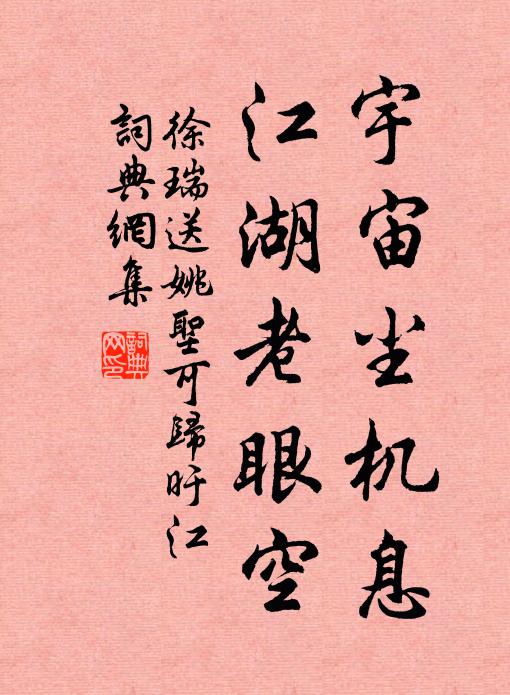 宇宙尘机息
江湖老眼空
徐瑞送姚聖可歸旴江
詞典網集
詞典
网印